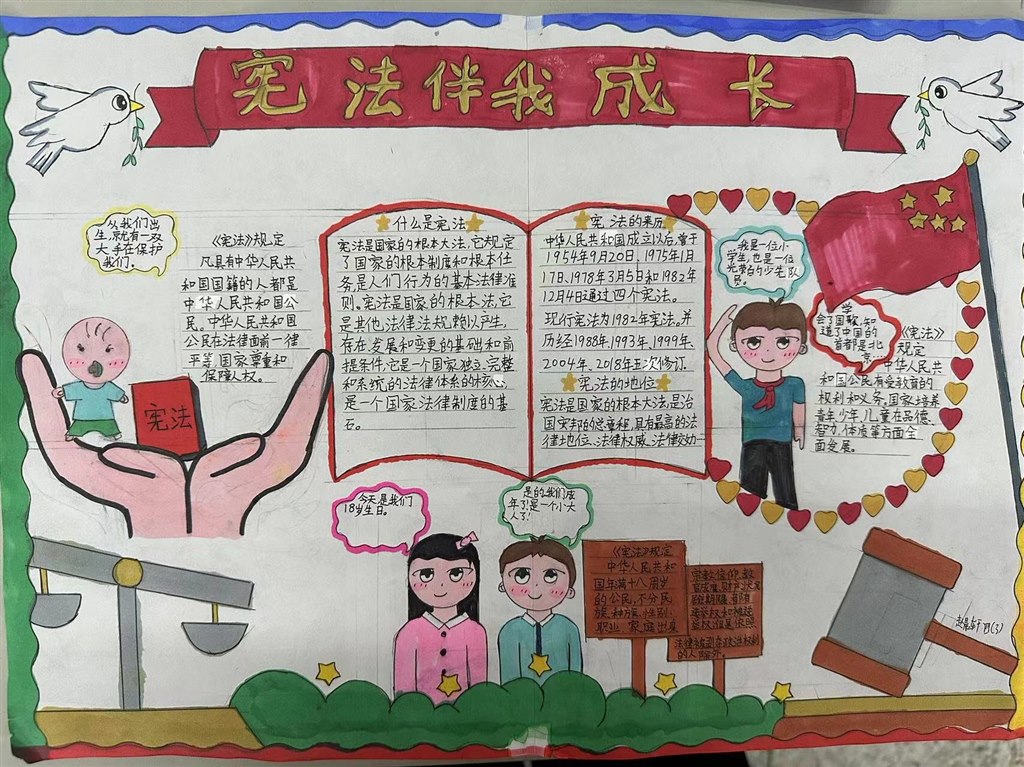 宪法伴我成长
从我们出
生,就有一双
大手在保护
我们.
《宪法》规定
凡具有中华人民共
和国国籍的人都是
中华人民共和国公
民。中华人民共和国
公民在法律面前一律
平等.国家尊重和
保障人权。
宪法
什么是宪法
宪法是国家的根本大法,它规定
了国家的根本制度和根本任
务,是人们行为的基本法律准
则。宪法是国家的根本法,它
是其他法律法规赖以产生,
存在发展和变更的基础和前
提条件,它是一个国家独立、完整
和系统的法律体系的核心
是一个国家法律制度的基
石。
宪法的来历
中华人民共和国成立以后,曾于
1954年9月20日、1975年1月
17日、1978年3月5日和1982年
12月4日通过四个宪法。
现行宪法为1982年宪法。并
历经1988年、1993年、1999年、
2004年、2018年五次修订。
宪法的地位
宪法是国家的根本大法,是治
国安邦的总章程,具有最高的法
律地位、法律权威、法律效力
我是一位小
学生,也是一位
光荣的少先队
员。
学
会了国歌,知
道了中国的
首都是北
京.
《宪法》
规定
中华人民共
和国公民有受教育的
权利和义务。国家培养
青年、少年、儿童在品德、
智力、体质等方面全
面发展。
今天是我们
18岁生日。
是的,我们成
年了!是一个小大
人了!
《宪法》规定
中华人民共和
国年满十八周岁
的公民,不分民
族、种族、性别、
职业、家庭出身
宗教信仰、教
育程度、财产状况
居住期限,都有
选举权和被选
举权;但是依照
法律被剥夺政治权利
的人除外。
四(3)